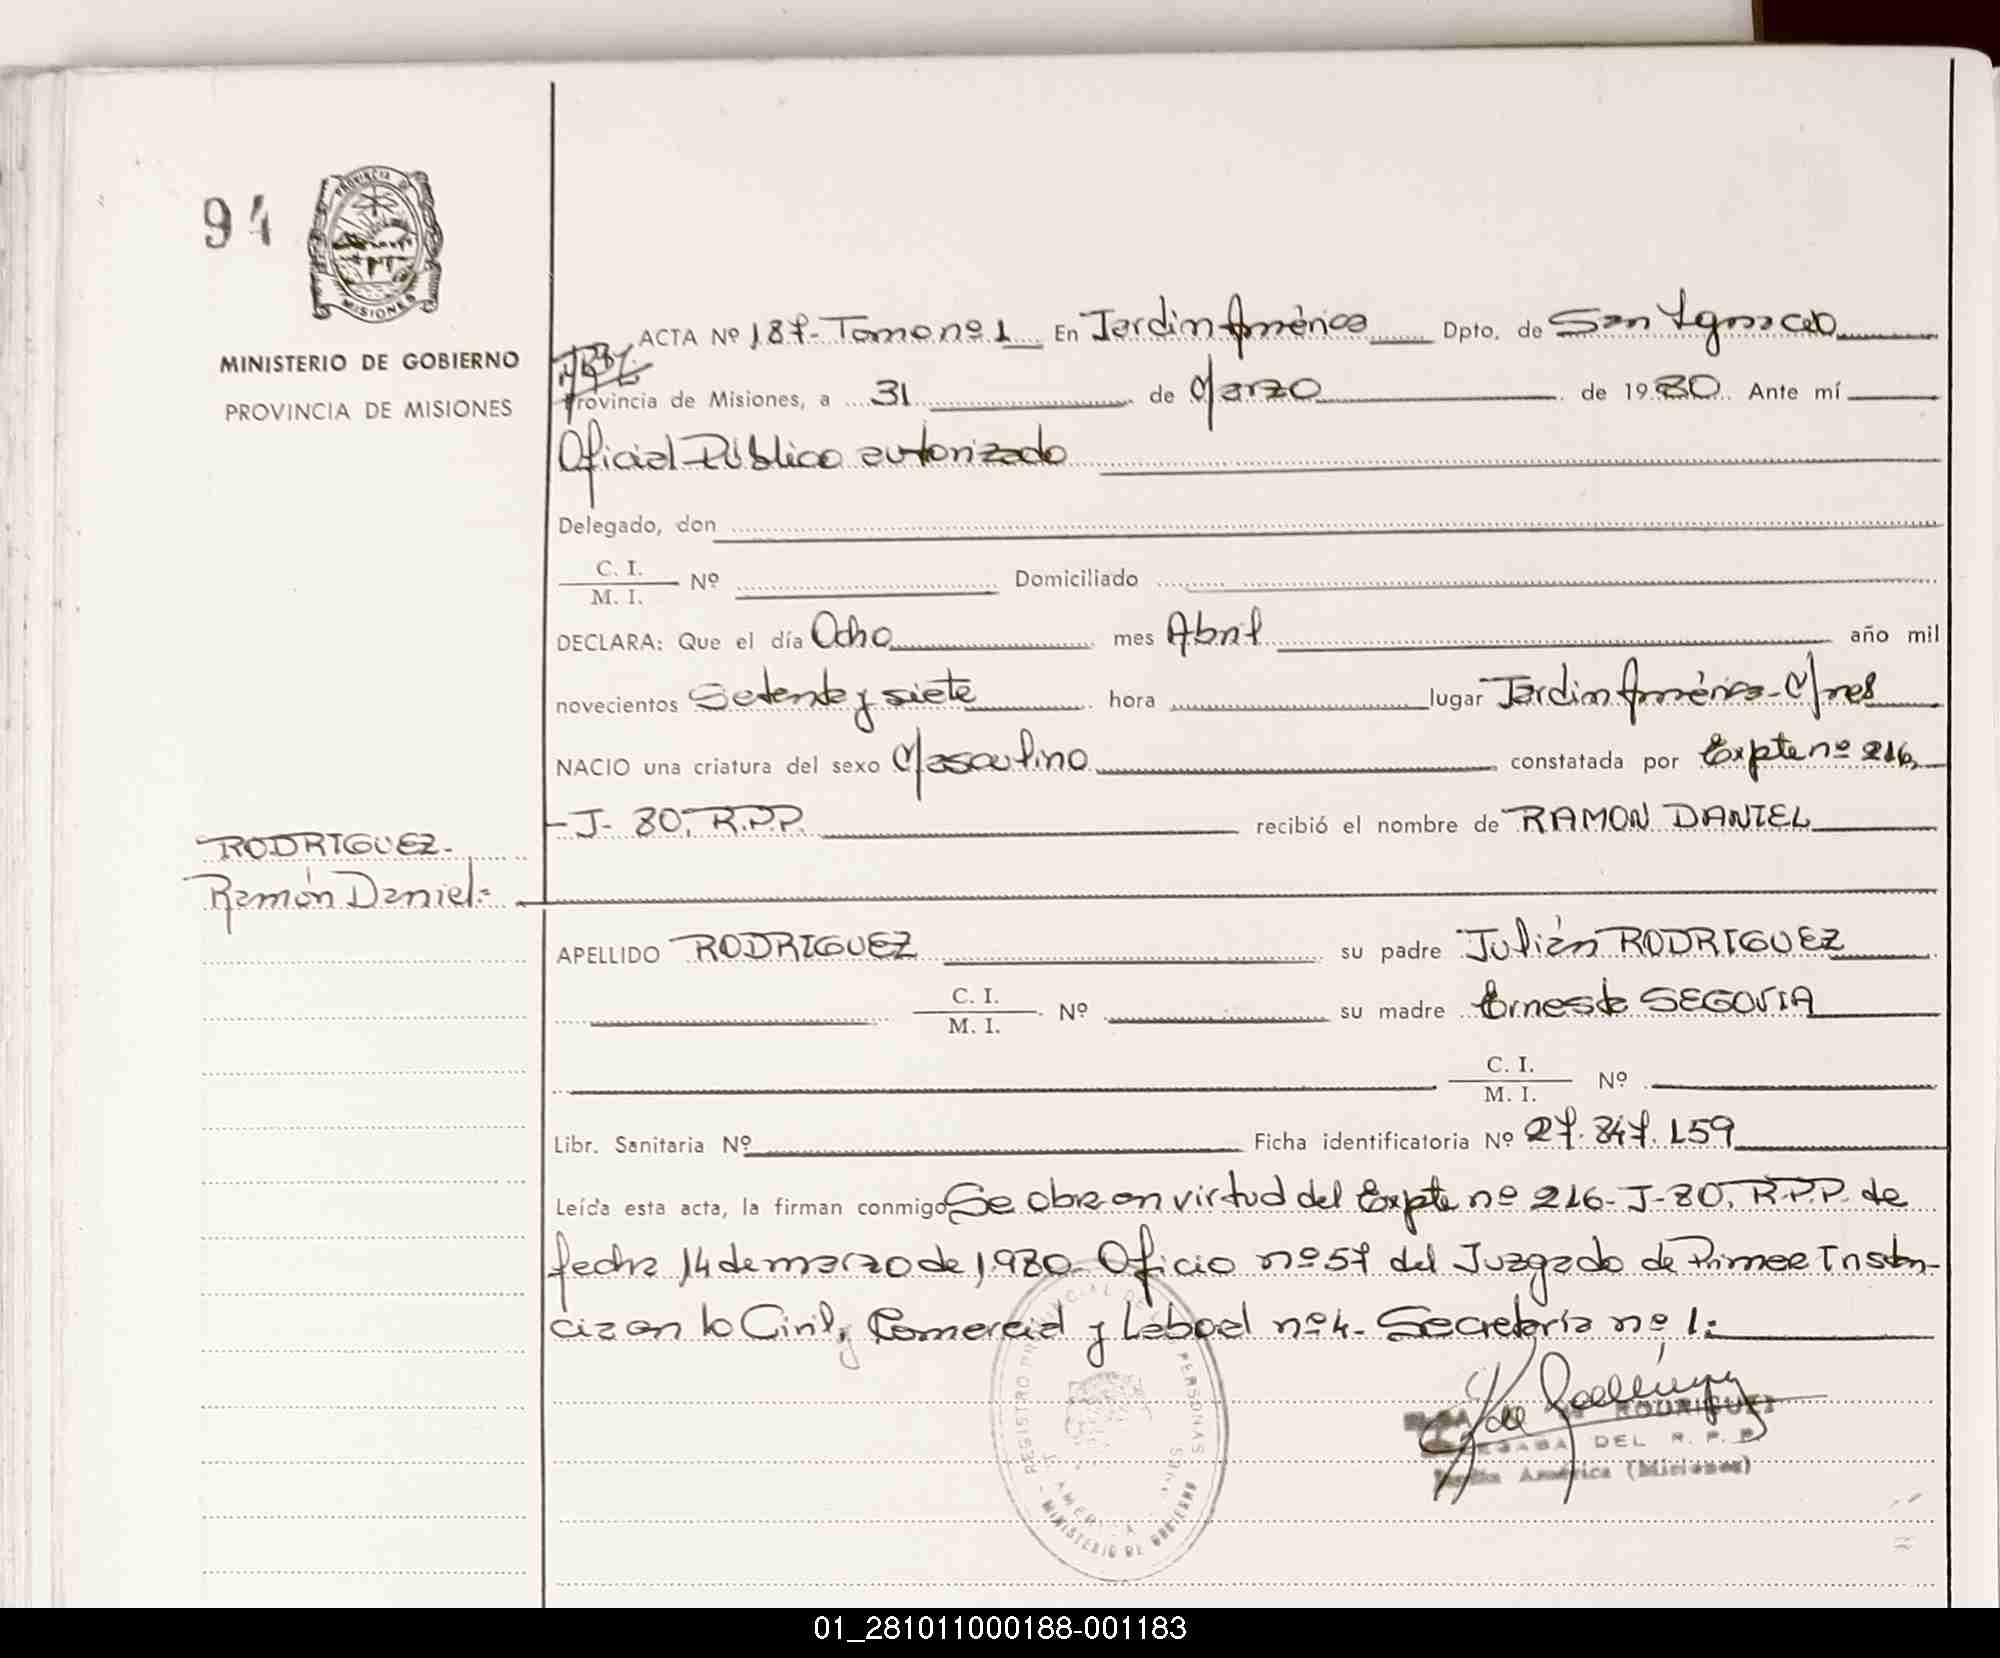 94
PROVINCIA DE
MISIONES
MINISTERIO DE GOBIERNO
PROVINCIA DE MISIONES
ACTA Nº 187- Tomo nº 1 En Jardín América Dpto. de San Ignacio
Provincia de Misiones, a 31 de Marzo de 1980. Ante mí
Oficial Público autorizado
Delegado, don
C. I.
M. I. Nº Domiciliado
DECLARA: Que el día Ocho mes Abril año mil
novecientos Setenta y siete hora lugar Jardín América- Mnes
NACIO una criatura del sexo Masculino constatada por Expte nº 216
-J- 80. R.P.P. recibió el nombre de RAMON DANIEL
RODRIGUEZ-
Ramón Daniel-
APELLIDO RODRIGUEZ su padre Julián RODRIGUEZ
C. I.
M. I. Nº su madre Ernesta SEGOVIA
C. I.
M. I. Nº
Libr. Sanitaria Nº Ficha identificatoria Nº 27.847.159
Leída esta acta, la firman conmigo Se obra en virtud del Expte nº 216-J-80. R.P.P. de
fecha 14 de marzo de 1.980. Oficio nº 57 del Juzgado de Primer Instan-
cia en lo Civil, Comercial y Laboral nº 4- Secretaría nº 1:
REGISTRO PROVINCIAL DE PERSONAS
AMERICA
- MINISTERIO DE GOBIERNO
RODRIGUEZ
DEL R. P. P.
Jardín América (Misiones)
01_281011000188-001183